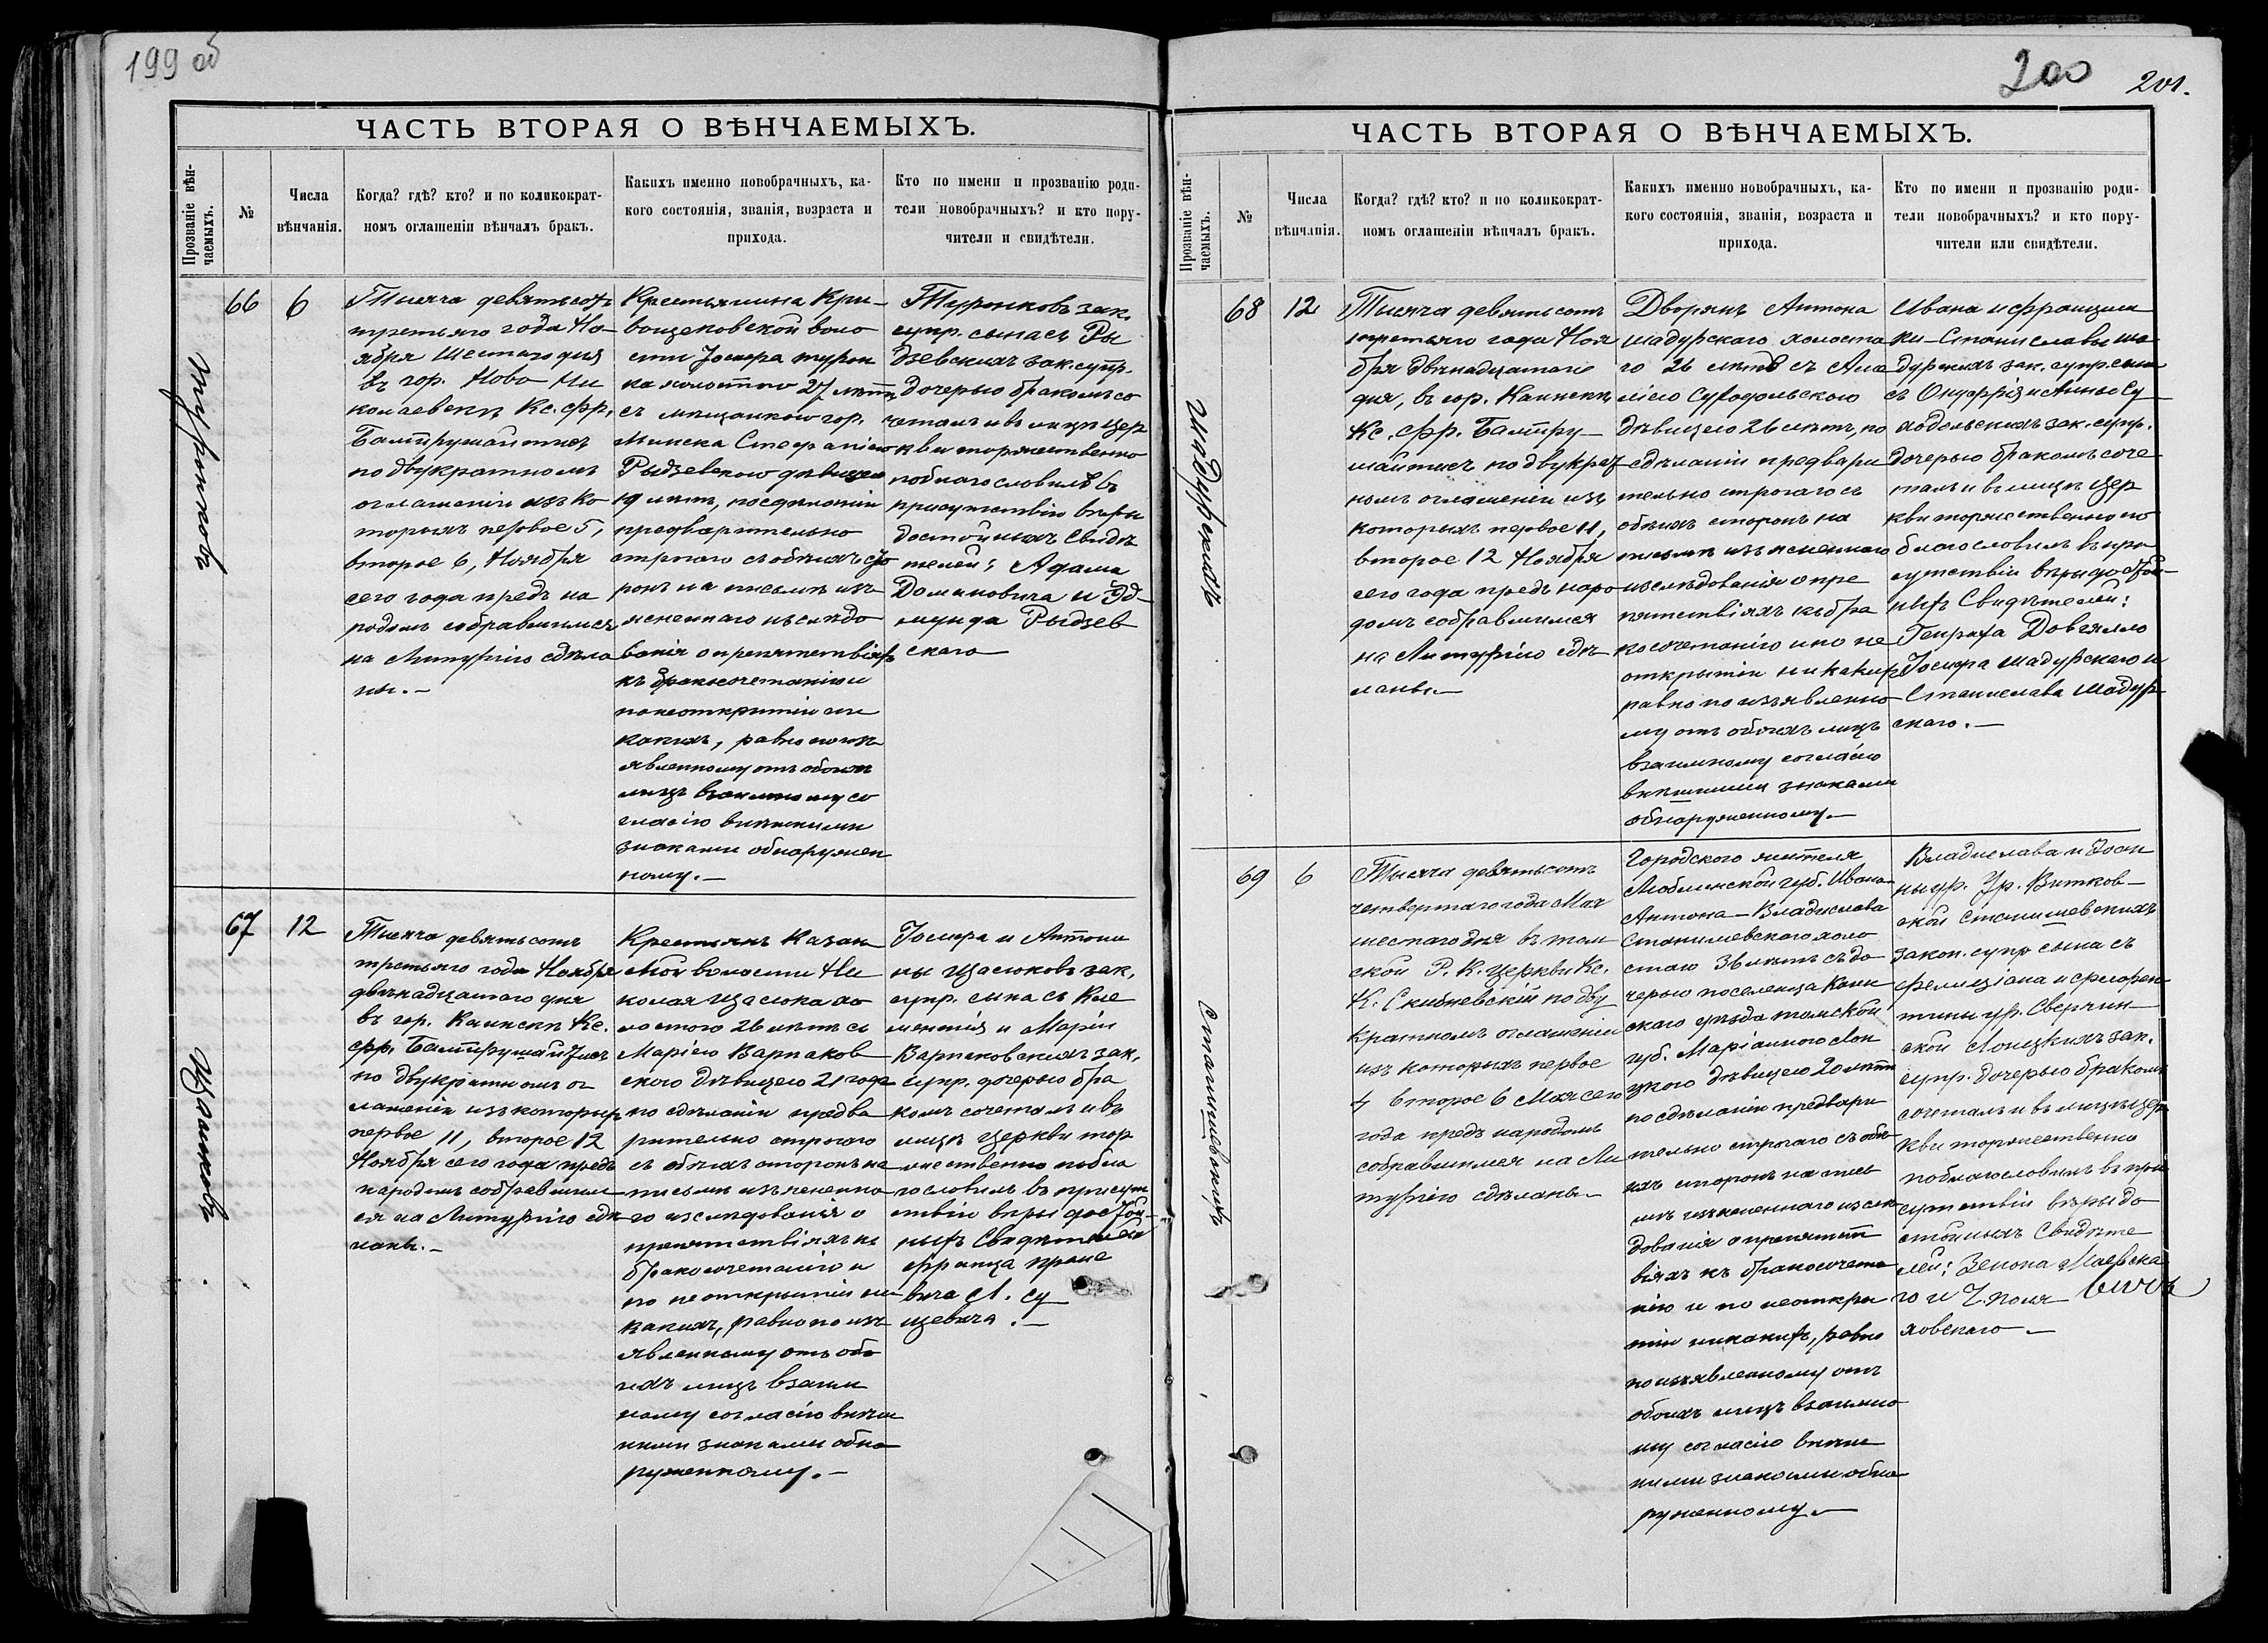 199 об
ЧАСТЬ ВТОРАЯ О ВѢНЧАЕМЫХЪ.
Прозваніе вѣн-
чаемыхъ.
№
Числа
вѣнчанія.
Когда? гдѣ? кто? и по коликократ-
номъ оглашеніи вѣнчалъ бракъ.
Какихъ именно новобрачныхъ, ка-
кого состоянія, званія, возраста и
прихода.
Кто по имени и прозванію роди-
тели новобрачныхъ? и кто пору-
чители и свидѣтели.
Туронковъ
66
6
Тысяча девятьсотъ
третьяго года Но-
ября шестого дня
въ гор. Ново-Ни
колаевскѣ Кс. Фр.
Балтрушайтисъ
по двукратномъ
оглашеніи изъ ко
торыхъ первое 5,
второе 6, Ноября
сего года предъ на
родомъ собравшимся
на Литургію сдѣла
ны.-
Крестьянина Кри-
вощековской воло
сти Іосифа Турон
ка холостого 27 лѣтъ
съ мѣщанкою гор.
Минска Стефаніею
Рыдзевскою дѣвицею
19 лѣтъ, по сдѣланіи
предварительно
строгаго съ обѣихъ сто
ронъ на письмѣ изъ
ясненнаго изслѣдо
ванія о препятствіяхъ
къ бракосочетанію и
по неоткрытіи ни
какихъ, равно по изъ
явленному отъ обоихъ
лицъ взаимному со
гласію внѣшними
знаками обнаружен
ному.-
Туронковъ зак.
супр. сына съ Ры
дзевскихъ зак. супр.
дочерью бракомъ со
четалъ и въ лицѣ Цер
кви торжественно
поблагословилъ въ
присутствіи вѣры
достойныхъ Свидѣ
телей: Адама
Доминовича и Эд-
мунда Рыдзев
скаго
67
12
Тысяча девятьсотъ
третьяго года Ноября
двѣнадцатаго дня
въ гор. Каинскѣ Кс.
Фр. Балтрушайтисъ
по двукратномъ ог
лашеніи изъ которыхъ
первое 11, второе 12
Ноября сего года предъ
народомъ собравшим
ся на Литургію сдѣ
ланы.-
Крестьянъ Казан
ской волости Ни
колая Щасюка хо
лостого 26 лѣтъ съ
Маріею Варпаков
скою дѣвицею 21 года
по сдѣланіи предва
рительно строгаго
съ обѣихъ сторонъ на
письмѣ изъясненна
го изслѣдованія о
препятствіяхъ къ
бракосочетанію и
по неоткрытіи ни
какихъ, равно по изъ
явленному отъ обо
ихъ лицъ взаим
ному согласію внѣш
ними знаками обна
руженному.-
Іосифа и Антони
ны Щасюковъ зак.
супр. сына съ Кле
ментія и Маріи
Варпаковскихъ зак.
супр. дочерью бра
комъ сочеталъ и въ
лицѣ Церкви тор
жественно побла
гословилъ въ присут
ствіи вѣры достой-
ныхъ Свидѣтелей
Франца
вича и
щевича.-
200
201.
ЧАСТЬ ВТОРАЯ О ВѢНЧАЕМЫХЪ.
Прозваніе вѣн-
чаемыхъ.
№
Числа
вѣнчанія.
Когда? гдѣ? кто? и по коликократ-
номъ оглашеніи вѣнчалъ бракъ.
Какихъ именно новобрачныхъ, ка-
кого состоянія, званія, возраста и
прихода.
Кто по имени и прозванію роди-
тели новобрачныхъ? и кто пору-
чители или свидѣтели.
Шадурскихъ
68
12
Тысяча девятьсотъ
третьяго года Ноя
бря двѣнадцатаго
дня, въ гор. Каинскѣ
Кс. Фр. Балтру-
шайтисъ по двукрат
номъ оглашеніи изъ
которыхъ первое 11,
второе 12 Ноября
сего года предъ наро
домъ собравшимся
на Литургію сдѣ
ланы.-
Дворянъ Антона
Шадурскаго холоста
го 26 лѣтъ съ Ама
ліею Суходольскою
дѣвицею 26 лѣтъ, по
сдѣланіи предвари
тельно строгаго съ
обѣихъ сторонъ на
письмѣ изъясненнаго
изслѣдованія о пре
пятствіяхъ къ бра
косочетанію и по не
открытіи никакихъ
равно по изъявленно
му отъ обоихъ лицъ
взаимному согласію
внѣшними знаками
обнаруженному.-
Ивана и Францишки-
ки-Станиславы Ша
дурскихъ зак. супр. сына
съ Онуфрія и Анны Су
ходольскихъ зак. супр.
дочерью бракомъ соче
талъ и въ лицѣ Цер
кви торжественно по
благословилъ въ при
сутствіи вѣры достой-
ныхъ Свидѣтелей:
Генриха Довгялло
Іосифа Шадурскаго и
Станислава Шадур
скаго.-
Станишевскихъ
69
6
Тысяча девятьсотъ
четвертаго года Мая
шестаго дня въ Том
ской Р. К. Церкви Кс.
К. Скибневскій по дву
кратномъ оглашеніи
изъ которыхъ первое
второе 6 Мая сего
года предъ народомъ
собравшимся на Ли
тургію сдѣланы.-
Городского жителя
Люблинской губ. Ивана-
Антона-Владислава
Станишевскаго холо
стаго 36 лѣтъ съ до
черью поселенца Каин
скаго уѣзда Томской
губ. Маріанною Лон
цкою дѣвицею 20 лѣтъ
по сдѣланіи предвари
тельно строгаго съ обѣ
ихъ сторонъ на пись
мѣ изъясненнаго изслѣ
дованія о препятст
віяхъ къ бракосочета
нію и по неоткры
тіи никакихъ, равно
по изъявленному отъ
обоихъ лицъ взаимно
му согласію внѣш
ними знаками обна
руженному.-
Владислава и Іоан
ны ур. Витков-
ской Станишевскихъ
закон. супр. сына съ
Фелиціана и Флорен
тины ур. Сверчин-
ской Лонцкихъ зак.
супр. дочерью бракомъ
сочеталъ и въ лицѣ Цер
кви торжественно
поблагословилъ въ при
сутствіи вѣры до
стойныхъ Свидѣте
лей: Зенона Маевска
го и
ховскаго.-